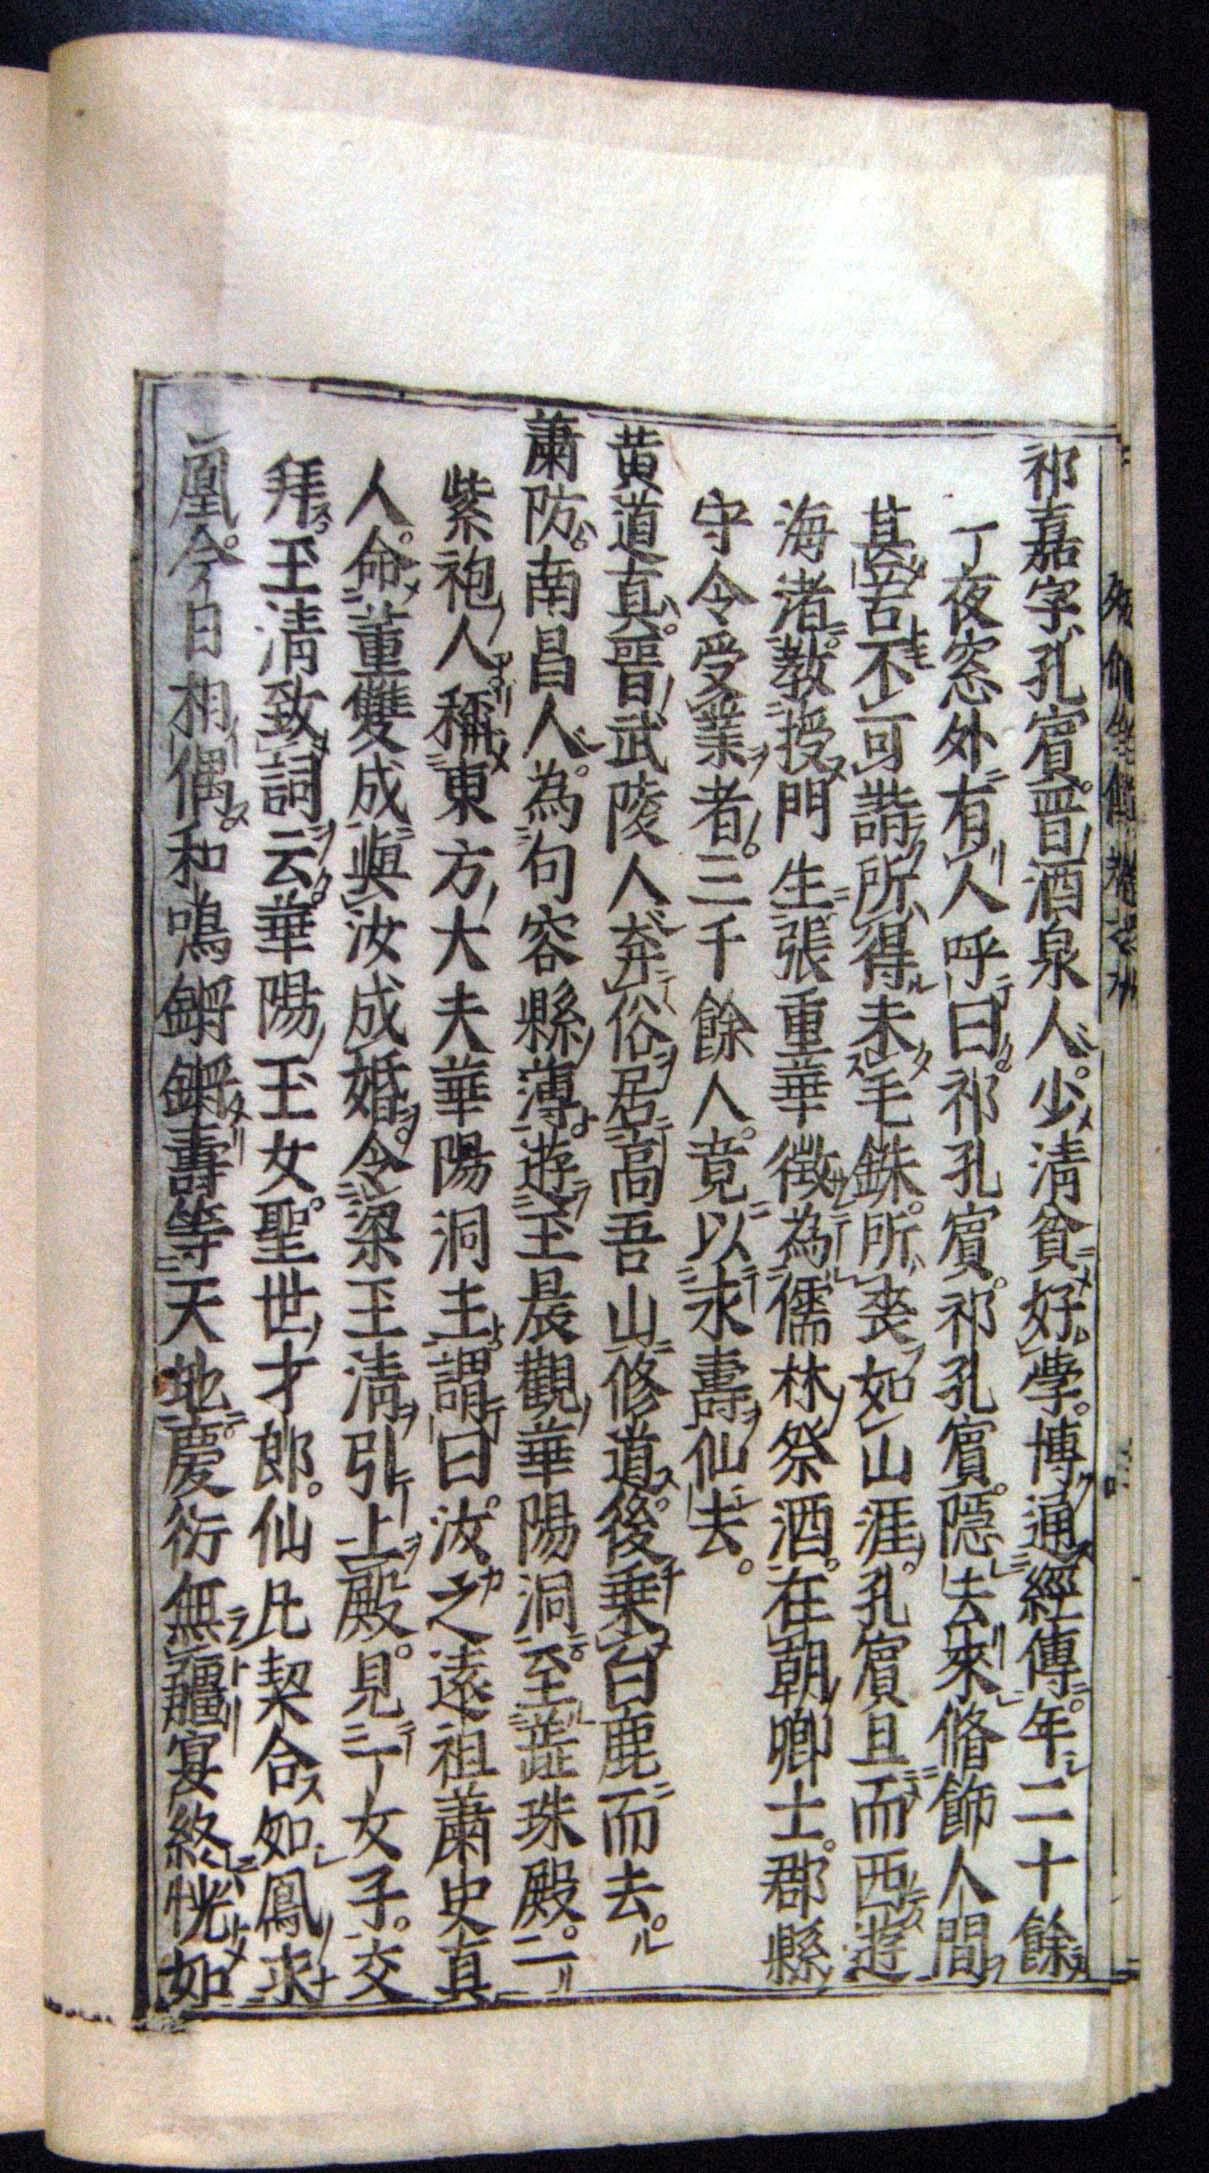 祁嘉字孔賓。晋酒泉人。少清貧好學。博通經傳。年二十餘
丁夜窓外有人呼曰。祁孔賓。祁孔賓。隱去來脩飾人間
甚苦不可諧所得未毛銖。所喪如山涯。孔賓且而西遊
海渚。教授門生張重華徵為儒林祭酒。在朝卿士。郡縣
守令受業者。三千餘人。竟以求壽仙去。
黄道真。晉武陵人。弃俗居高吾山修道。後乗白鹿而去。
蕭防。南昌人。為句容縣薄。遊玉晨觀華陽洞。至蕋珠殿。二
紫袍人稱東方大夫華陽洞主。謂曰。汝之遠祖蕭史真
人。命董雙成與汝成婚。令梁玉清引上殿。見一女子。交
拜。玉清致詞云。華陽玉女。聖世才郎。仙凡契合如鳳求
凰。今日相偶。和鳴鏘鏘壽等天地。慶衍無疆宴終恍如